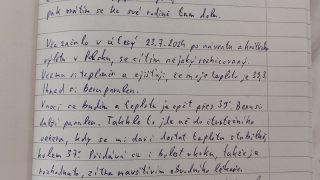 pak vrátím se ke své rodině tam dolů.
Vše začalo v úterý 23.7.2024 po návratu z krátkého
výletu v Polsku, se cítím nějaký rozhicovaný.
Vezmu si teploměr a zjišťuji, že moje teplota je 39,3
Ihned si beru paralen.
V noci se budím a teplota je opět přes 39°. Beru si
další paralen. Takhle to jde až do čtvrtečního
večera, kdy se mi daří dostat teplotu stabilně
kolem 37°. Přidává se i bolest v krku, takže je
rozhodnuto, zítra navštívím obvodního lékaře.